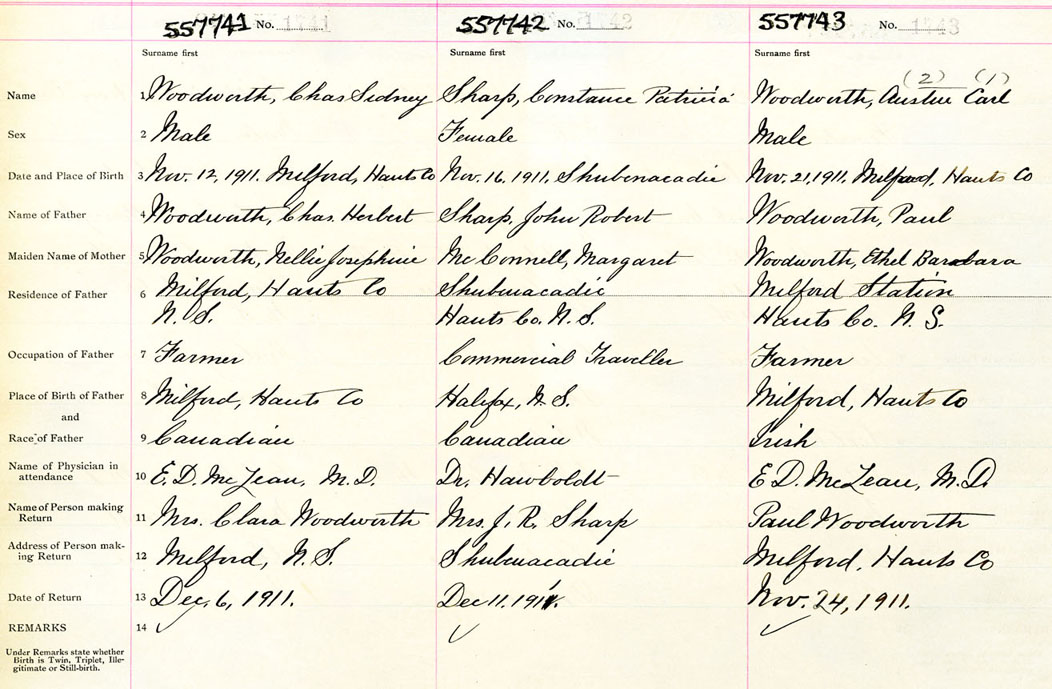 557741 No. 1741 557742 No. 1742 557743 No. 1743
Surname first Surname first Surname first
(2) (1)
Name 1 Woodworth, Chas Sidney Sharp, Constance Patricia Woodworth, Austin Carl
Sex 2 Male Female Male
Date and Place of Birth 3 Nov. 12, 1911. Milford, Hants Co Nov. 16, 1911, Shubenacadie Nov. 21, 1911, Milford, Hants Co
Name of Father 4 Woodworth, Chas. Herbert Sharp, John Robert Woodworth, Paul
Maiden Name of Mother 5 Woodworth, Nellie Josephine McConnell, Margaret Woodworth, Ethel Barabara
Residence of Father 6 Milford, Hants Co Shubenacadie Milford Station
N. S. Hants Co. N. S. Hants Co. N. S.
Occupation of Father 7 Farmer Commercial Traveller Farmer
Place of Birth of Father 8 Milford, Hants Co Halifax, N. S. Milford, Hants Co
and
Race of Father 9 Canadian Canadian Irish
Name of Physician in
attendance 10 E. D. McLean, M. D. Dr. Hawboldt E D. McLean, M. D.
Name of Person making
Return 11 Mrs. Clara Woodworth Mrs. J. R. Sharp Paul Woodworth
Address of Person mak-
ing Return 12 Milford, N. S. Shubenacadie Milford, Hants Co
Date of Return 13 Dec. 6, 1911. Dec 11. 1911. Nov. 24, 1911.
REMARKS 14 ✓ ✓ ✓
Under Remarks state whether
Birth is Twin, Triplet, Ille-
gitimate or Still-birth.